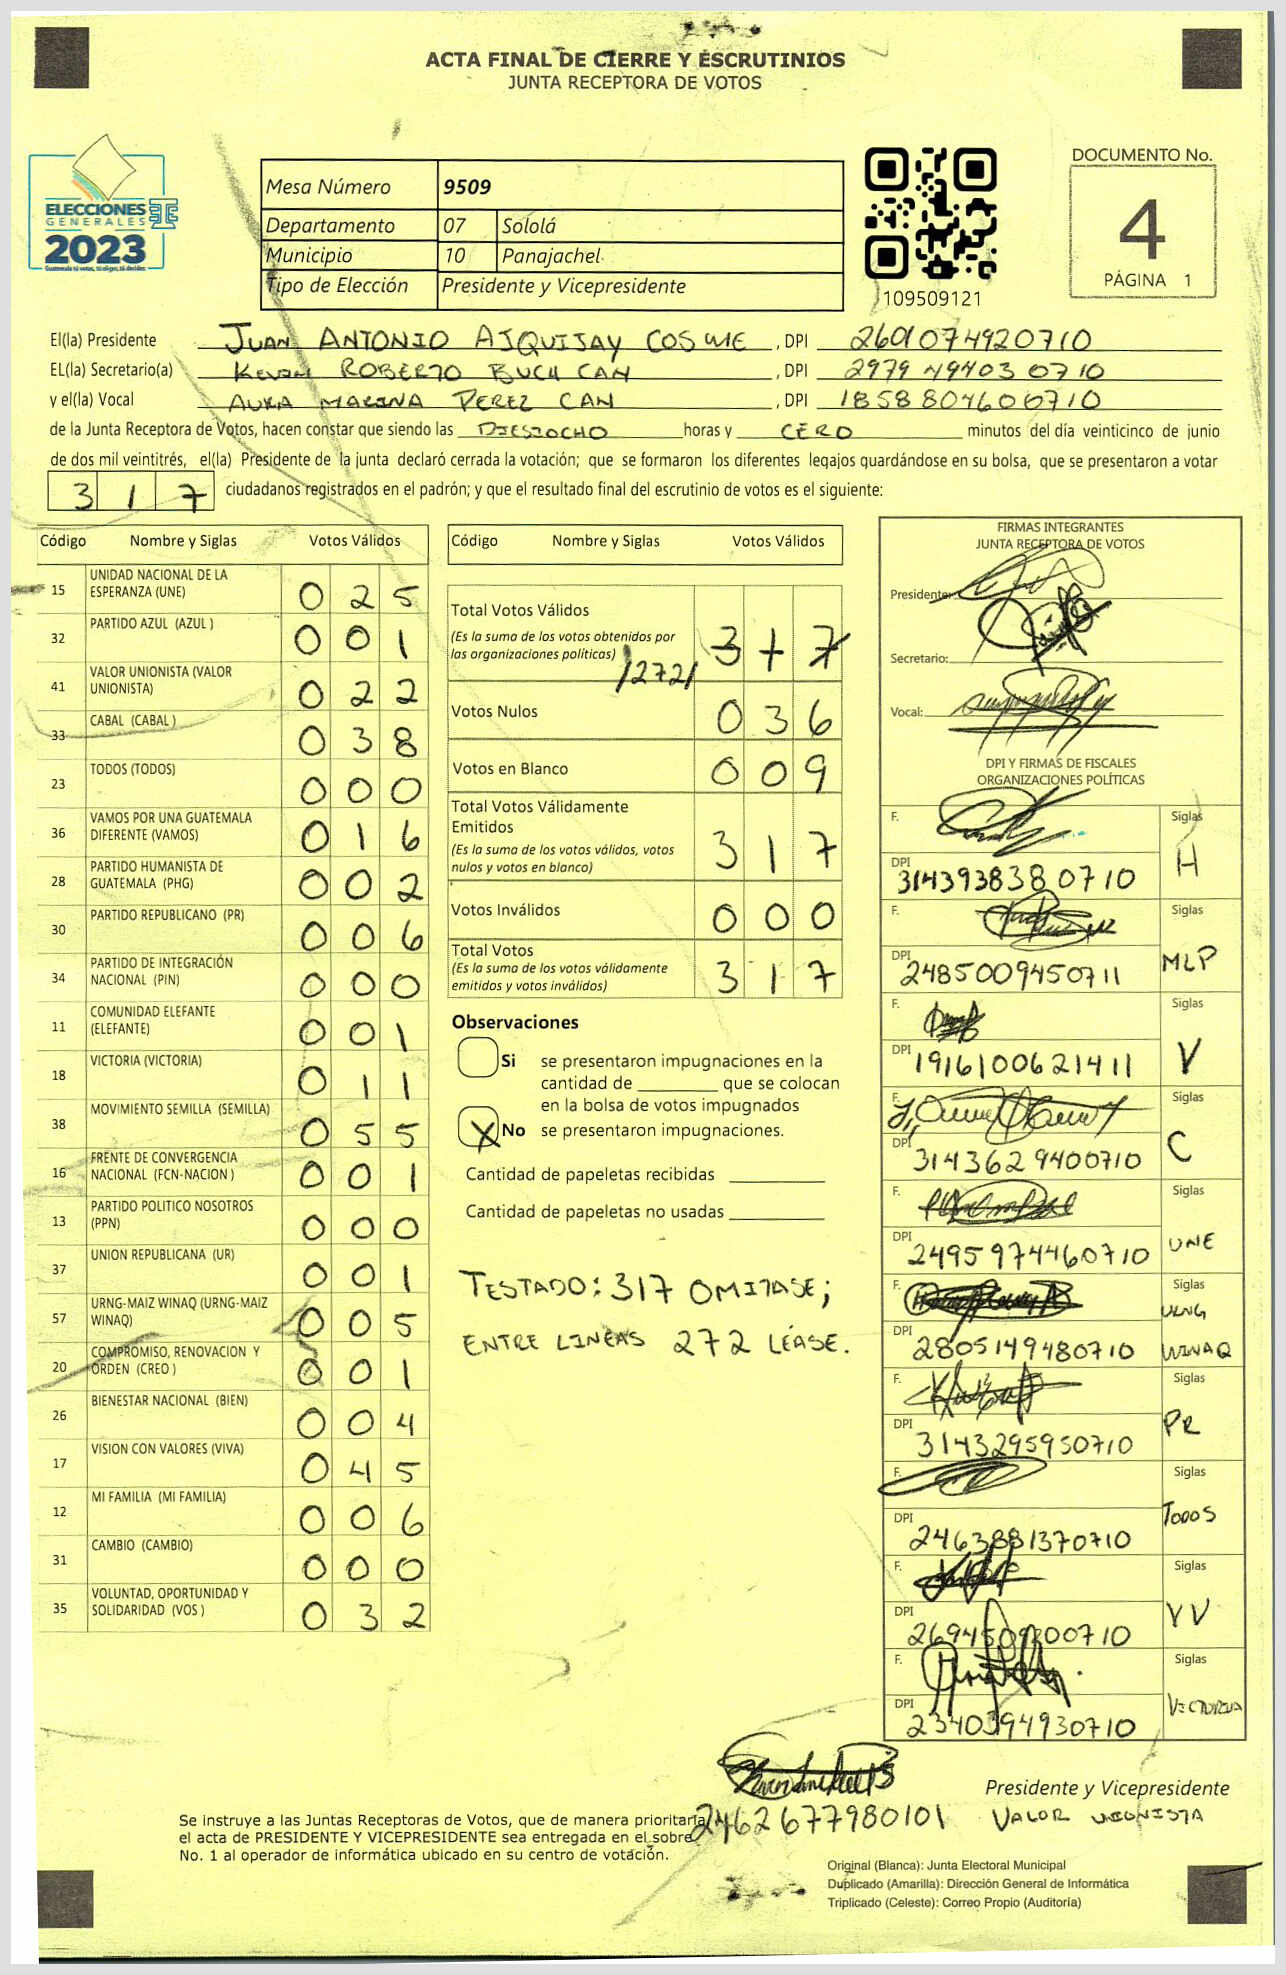 ACTA FINAL DE CIERRE Y ESCRUTINIOS
JUNTA RECEPTORA DE VOTOS
ELECCIONES
GENERALES
2023
Guatemala tú votas, tú eliges, tú decides
Mesa Número 9509
Departamento 07 Sololá
Municipio 10 Panajachel
Tipo de Elección Presidente y Vicepresidente
109509121
DOCUMENTO No.
4
PÁGINA 1
El(la) Presidente JUAN ANTONIO AJQUIJAY COSME , DPI 2601074920710
EL(la) Secretario(a) KEVIN ROBERTO BUCH CAN , DPI 2979494030710
y el(la) Vocal AURA MARINA PEREZ CAN , DPI 1858804600710
de la Junta Receptora de Votos, hacen constar que siendo las DIESIOCHO horas y CERO minutos del día veinticinco de junio
de dos mil veintitrés, el(la) Presidente de la junta declaró cerrada la votación; que se formaron los diferentes legajos guardándose en su bolsa, que se presentaron a votar
317 ciudadanos registrados en el padrón; y que el resultado final del escrutinio de votos es el siguiente:
Código Nombre y Siglas Votos Válidos
15 UNIDAD NACIONAL DE LA ESPERANZA (UNE) 025
32 PARTIDO AZUL (AZUL ) 001
41 VALOR UNIONISTA (VALOR UNIONISTA) 022
33 CABAL (CABAL ) 038
23 TODOS (TODOS) 000
36 VAMOS POR UNA GUATEMALA DIFERENTE (VAMOS) 016
28 PARTIDO HUMANISTA DE GUATEMALA (PHG) 002
30 PARTIDO REPUBLICANO (PR) 006
34 PARTIDO DE INTEGRACIÓN NACIONAL (PIN) 000
11 COMUNIDAD ELEFANTE (ELEFANTE) 001
18 VICTORIA (VICTORIA) 011
38 MOVIMIENTO SEMILLA (SEMILLA) 055
16 FRENTE DE CONVERGENCIA NACIONAL (FCN-NACION ) 001
13 PARTIDO POLITICO NOSOTROS (PPN) 000
37 UNION REPUBLICANA (UR) 001
57 URNG-MAIZ WINAQ (URNG-MAIZ WINAQ) 005
20 COMPROMISO, RENOVACION Y ORDEN (CREO ) 001
26 BIENESTAR NACIONAL (BIEN) 004
17 VISION CON VALORES (VIVA) 045
12 MI FAMILIA (MI FAMILIA) 006
31 CAMBIO (CAMBIO) 000
35 VOLUNTAD, OPORTUNIDAD Y SOLIDARIDAD (VOS ) 032
Código Nombre y Siglas Votos Válidos
Total Votos Válidos
(Es la suma de los votos obtenidos por
las organizaciones políticas) 317
/272/
Votos Nulos 036
Votos en Blanco 009
Total Votos Válidamente
Emitidos
(Es la suma de los votos válidos, votos
nulos y votos en blanco) 317
Votos Inválidos 000
Total Votos
(Es la suma de los votos válidamente
emitidos y votos inválidos) 317
Observaciones
Si se presentaron impugnaciones en la
cantidad de ________ que se colocan
en la bolsa de votos impugnados
X No se presentaron impugnaciones.
Cantidad de papeletas recibidas
Cantidad de papeletas no usadas
TESTADO: 317 OMITASE;
ENTRE LINEAS 272 LÉASE.
FIRMAS INTEGRANTES
JUNTA RECEPTORA DE VOTOS
Presidente:
Secretario:
Vocal:
DPI Y FIRMAS DE FISCALES
ORGANIZACIONES POLÍTICAS
F. Siglas
DPI 3143938380710 H
F. Siglas
DPI 2485009450711 MLP
F. Siglas
DPI 1916100621411 V
F. Siglas
DPI 3143629400710 C
F. Siglas
DPI 2495974460710 UNE
F. Siglas
DPI 2805149480710 URNG WINAQ
F. Siglas
DPI 3143295950710 PR
F. Siglas
DPI 2463881370710 TODOS
F. Siglas
DPI VV
F. Siglas
DPI 2340394930710 VICTORIA
2462677980101
Presidente y Vicepresidente
VALOR UNIONISTA
Se instruye a las Juntas Receptoras de Votos, que de manera prioritaria
el acta de PRESIDENTE Y VICEPRESIDENTE sea entregada en el sobre
No. 1 al operador de informática ubicado en su centro de votación.
Original (Blanca): Junta Electoral Municipal
Duplicado (Amarilla): Dirección General de Informática
Triplicado (Celeste): Correo Propio (Auditoría)